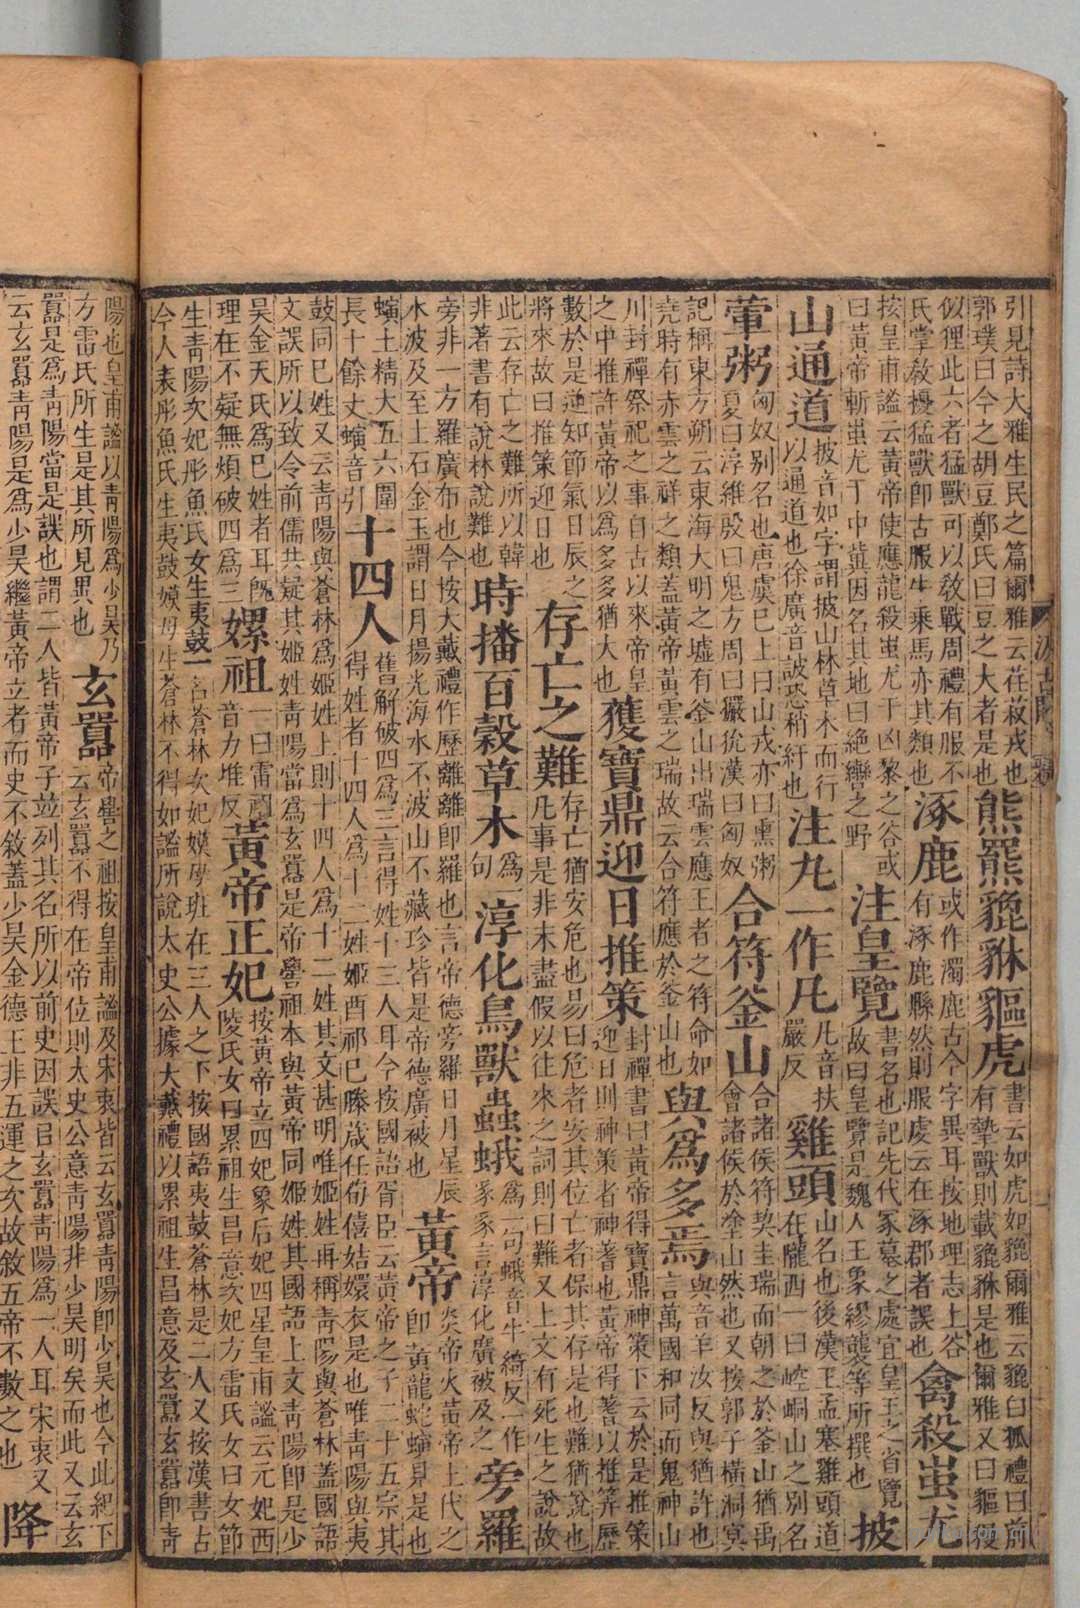 引見詩大雅生民之篇爾雅云荏菽戎也
郭璞曰今之胡豆鄭氏曰豆之大者是也
熊羆貔貅貙虎
書云如虎如貔爾雅云貔白狐禮曰前
有摯獸則載貔貅是也爾雅又曰貙獌
似俚此六者猛獸可以敎戰周禮有服不
氏掌敎擾猛獸卽古服牛乘馬亦其類也
涿鹿
或作濁鹿古今字異耳按地理志上谷
有涿鹿縣然則服虔云在涿郡者誤也
禽殺蚩尤
按皇甫謐云黃帝使應龍殺蚩尤于凶黎之谷或
曰黃帝斬蚩尤于中冀因名其地曰絶轡之野
注皇覽
書名也記先代冢墓之處宜皇王之省覽
故曰皇覽是魏人王象繆襲等所撰也
披
山通道
披音如字謂披山林草木而行
以通道也徐廣音詖恐稍紆也
注丸一作凡
凡音扶
嚴反
雞頭
山名也後漢王孟塞雞頭道
在隴西一曰崆峒山之別名
葷粥
匈奴別名也唐虞巳上曰山戎亦曰熏粥
夏曰淳維殷曰鬼方周曰玁狁漢曰匈奴
合符釜山
合諸侯符契圭瑞而朝之於釜山猶禹
會諸侯於塗山然也又按郭子橫洞冥
記稱東方朔云東海大明之墟有釜山出瑞雲應王者之符命如
堯時有赤雲之祥之類蓋黃帝黃雲之瑞故云合符應於釜山也
與爲多焉
與音羊汝反與猶許也
言萬國和同而鬼神山
川封禪祭祀之事自古以來帝皇
之中推許黃帝以爲多多猶大也
獲寶鼎迎日推策
封禪書曰黃帝得寶鼎神策下云於是推策
迎日則神策者神蓍也黃帝得蓍以推筭歷
數於是逆知節氣日辰之
將來故曰推策迎日也
存亡之難
存亡猶安危也易曰危者安其位亡者保其存是也難猶說也
凡事是非未盡假以往來之詞則曰難又上文有死生之說故
此云存亡之難所以韓
非著書有說林說難也
時播百穀草木
爲一
句
淳化鳥獸蟲蛾
爲一句蛾音牛綺反一作
豕豕言淳化廣被及之
旁羅
旁非一方羅廣布也今按大戴禮作歷離離卽羅也言帝德旁羅日月星辰
水波及至土石金玉謂日月揚光海水不波山不藏珍皆是帝德廣被也
黃帝
炎帝火黃帝土代之
卽黃龍蛇螾見是也
螾土精大五六圍
長十餘丈螾音引
十四人
舊解破四爲三言得姓十三人耳今按國語胥臣云黃帝之子二十五宗其
得姓者十四人爲十二姓姬酉祁巳滕葴任荀僖姞嬛衣是也唯靑陽與夷
鼓同巳姓又云靑陽與蒼林爲姬姓上則十四人爲十二姓其文甚明唯姬姓再稱靑陽與蒼林蓋國語
文誤所以致令前儒共疑其姬姓靑陽當爲玄囂是帝嚳祖本與黃帝同姬姓其國語上文靑陽卽是少
昊金天氏爲巳姓者耳旣
理在不疑無煩破四爲三
嫘祖
一曰雷祖
音力堆反
黃帝正妃
按黃帝立四妃象后妃四星皇甫謐云元妃西
陵氏女曰累祖生昌意次妃方雷氏女曰女節
生靑陽次妃彤魚氏女生夷鼓一
名蒼林次妃嫫母班在三人之下按國語夷鼓蒼林是二人又按漢書古
今人表彤魚氏生夷鼓嫫母生蒼林不得如謐所說太史公據大戴禮以累祖生昌意及玄囂玄囂卽靑
陽也皇甫謐以靑陽爲少昊乃
方雷氏所生是其所見異也
玄囂
帝嚳之祖按皇甫謐及宋衷皆云玄囂靑陽卽少昊也今此紀下
云玄囂不得在帝位則太史公意靑陽非少昊明矣而此又云玄
囂是爲靑陽當是誤也謂二人皆黃帝子並列其名所以前史因誤目玄囂靑陽爲一人耳宋衷又
云玄囂靑陽是爲少昊繼黃帝立者而史不敘蓋少昊金德王非五運之次故敘五帝不數之也
降